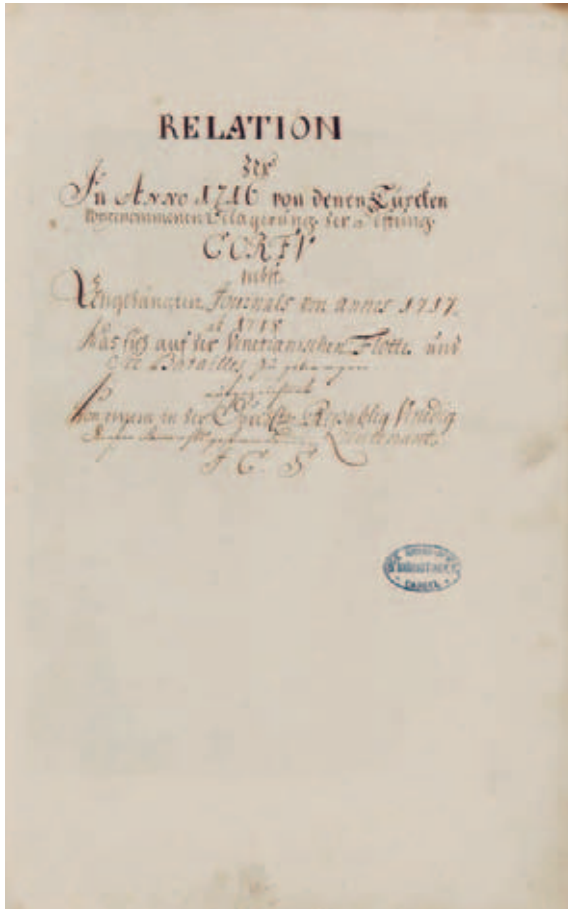 RELATION
der
In Anno 1716 von denen Türcken
vorgenommenen Belagerung der Festung
CORFU
nebst
Angehängten Journals von annis 1717
et 1718
Was sich auf der Venetianischen Flotte und
Batailles zu getragen
Von einem in der Republiq Venedig
Lieutenant